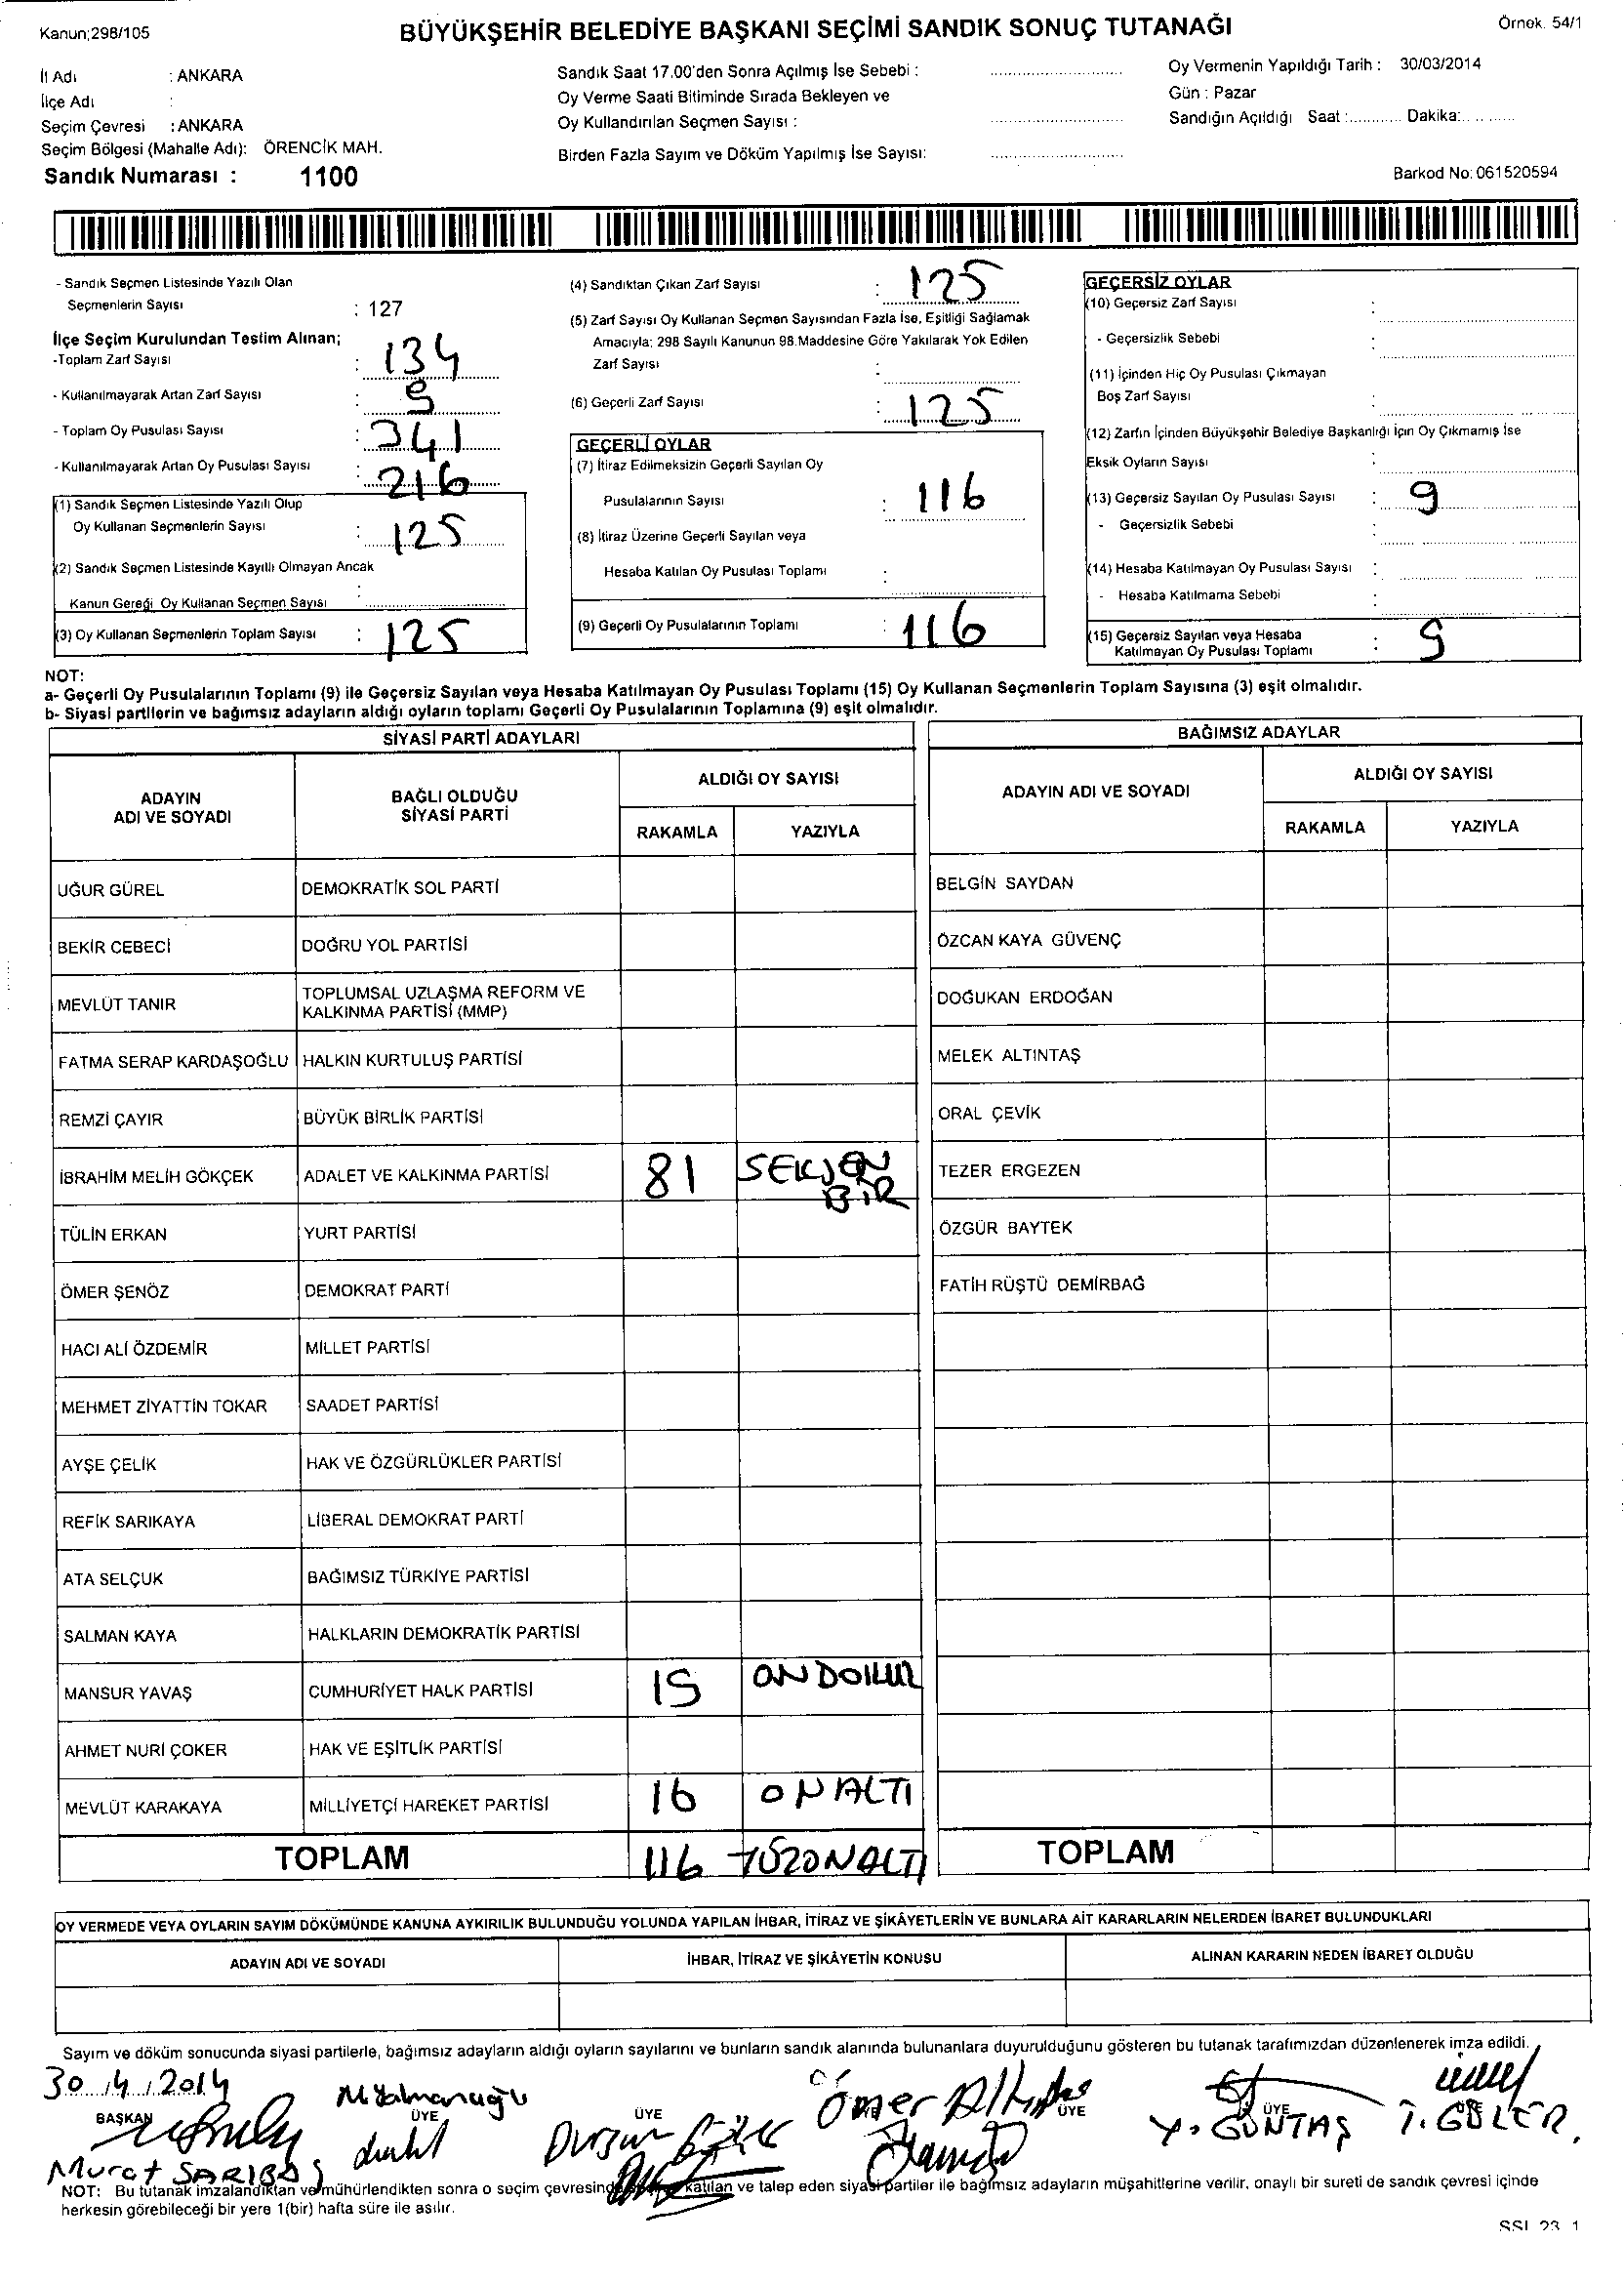 Kanun;298/105
BÜYÜKŞEHİR BELEDİYE BAŞKANI SEÇİMİ SANDIK SONUÇ TUTANAĞI
Örnek. 54/1
İl Adı : ANKARA
İlçe Adı :
Seçim Çevresi : ANKARA
Seçim Bölgesi (Mahalle Adı): ÖRENCİK MAH.
Sandık Numarası : 1100
Sandık Saat 17.00'den Sonra Açılmış İse Sebebi :
Oy Verme Saati Bitiminde Sırada Bekleyen ve
Oy Kullandırılan Seçmen Sayısı :
Birden Fazla Sayım ve Döküm Yapılmış İse Sayısı:
Oy Vermenin Yapıldığı Tarih : 30/03/2014
Gün : Pazar
Sandığın Açıldığı Saat :........... Dakika:...........
Barkod No: 061520594
- Sandık Seçmen Listesinde Yazılı Olan
Seçmenlerin Sayısı : 127
İlçe Seçim Kurulundan Teslim Alınan;
-Toplam Zarf Sayısı : 134
- Kullanılmayarak Artan Zarf Sayısı : 9
- Toplam Oy Pusulası Sayısı : 341
- Kullanılmayarak Artan Oy Pusulası Sayısı : 216
(1) Sandık Seçmen Listesinde Yazılı Olup
Oy Kullanan Seçmenlerin Sayısı : 125
(2) Sandık Seçmen Listesinde Kayıllı Olmayan Ancak
Kanun Gereği Oy Kullanan Seçmen Sayısı :
(3) Oy Kullanan Seçmenlerin Toplam Sayısı : 125
(4) Sandıktan Çıkan Zarf Sayısı : 125
(5) Zarf Sayısı Oy Kullanan Seçmen Sayısından Fazla İse, Eşitliği Sağlamak
Amacıyla; 298 Sayılı Kanunun 98.Maddesine Göre Yakılarak Yok Edilen
Zarf Sayısı :
(6) Geçerli Zarf Sayısı : 125
GEÇERLİ OYLAR
(7) İtiraz Edilmeksizin Geçerli Sayılan Oy
Pusulalarının Sayısı : 116
(8) İtiraz Üzerine Geçerli Sayılan veya
Hesaba Katılan Oy Pusulası Toplamı :
(9) Geçerli Oy Pusulalarının Toplamı : 116
GEÇERSİZ OYLAR
(10) Geçersiz Zarf Sayısı :
- Geçersizlik Sebebi :
(11) İçinden Hiç Oy Pusulası Çıkmayan
Boş Zarf Sayısı :
(12) Zarfın İçinden Büyükşehir Belediye Başkanlığı İçin Oy Çıkmamış İse
Eksik Oyların Sayısı :
(13) Geçersiz Sayılan Oy Pusulası Sayısı : 9
- Geçersizlik Sebebi :
(14) Hesaba Katılmayan Oy Pusulası Sayısı :
- Hesaba Katılmama Sebebi :
(15) Geçersiz Sayılan veya Hesaba
Katılmayan Oy Pusulası Toplamı : 9
NOT:
a- Geçerli Oy Pusulalarının Toplamı (9) ile Geçersiz Sayılan veya Hesaba Katılmayan Oy Pusulası Toplamı (15) Oy Kullanan Seçmenlerin Toplam Sayısına (3) eşit olmalıdır.
b- Siyasi partilerin ve bağımsız adayların aldığı oyların toplamı Geçerli Oy Pusulalarının Toplamına (9) eşit olmalıdır.
SİYASİ PARTİ ADAYLARI
ADAYIN ADI VE SOYADI
BAĞLI OLDUĞU SİYASİ PARTİ
ALDIĞI OY SAYISI
RAKAMLA YAZIYLA
UĞUR GÜREL DEMOKRATİK SOL PARTİ
BEKİR CEBECİ DOĞRU YOL PARTİSİ
MEVLÜT TANIR TOPLUMSAL UZLAŞMA REFORM VE
KALKINMA PARTİSİ (MMP)
FATMA SERAP KARDAŞOĞLU HALKIN KURTULUŞ PARTİSİ
REMZİ ÇAYIR BÜYÜK BİRLİK PARTİSİ
İBRAHİM MELİH GÖKÇEK ADALET VE KALKINMA PARTİSİ 81 SEKSEN
BİR
TÜLİN ERKAN YURT PARTİSİ
ÖMER ŞENÖZ DEMOKRAT PARTİ
HACI ALİ ÖZDEMİR MİLLET PARTİSİ
MEHMET ZİYATTİN TOKAR SAADET PARTİSİ
AYŞE ÇELİK HAK VE ÖZGÜRLÜKLER PARTİSİ
REFİK SARIKAYA LİBERAL DEMOKRAT PARTİ
ATA SELÇUK BAĞIMSIZ TÜRKİYE PARTİSİ
SALMAN KAYA HALKLARIN DEMOKRATİK PARTİSİ
MANSUR YAVAŞ CUMHURİYET HALK PARTİSİ 19 ONDOKUZ
AHMET NURİ ÇOKER HAK VE EŞİTLİK PARTİSİ
MEVLÜT KARAKAYA MİLLİYETÇİ HAREKET PARTİSİ 16 ONALTI
TOPLAM 116 YÜZONALTI
BAĞIMSIZ ADAYLAR
ADAYIN ADI VE SOYADI
ALDIĞI OY SAYISI
RAKAMLA YAZIYLA
BELGİN SAYDAN
ÖZCAN KAYA GÜVENÇ
DOĞUKAN ERDOĞAN
MELEK ALTINTAŞ
ORAL ÇEVİK
TEZER ERGEZEN
ÖZGÜR BAYTEK
FATİH RÜŞTÜ DEMİRBAĞ
TOPLAM
OY VERMEDE VEYA OYLARIN SAYIM DÖKÜMÜNDE KANUNA AYKIRILIK BULUNDUĞU YOLUNDA YAPILAN İHBAR, İTİRAZ VE ŞİKÂYETLERİN VE BUNLARA AİT KARARLARIN NELERDEN İBARET BULUNDUKLARI
ADAYIN ADI VE SOYADI İHBAR, İTİRAZ VE ŞİKÂYETİN KONUSU ALINAN KARARIN NEDEN İBARET OLDUĞU
Sayım ve döküm sonucunda siyasi partilerle, bağımsız adayların aldığı oyların sayılarını ve bunların sandık alanında bulunanlara duyurulduğunu gösteren bu tutanak tarafımızdan düzenlenerek imza edildi.
30/4/2014
BAŞKAN ÜYE ÜYE ÜYE ÜYE
Murat SARIBAŞ Dursun Ömer Y. GÜNTAŞ T. GÜLER
NOT: Bu tutanak imzalandıktan ve mühürlendikten sonra o seçim çevresinde katılan ve talep eden siyasi partiler ile bağımsız adayların müşahitlerine verilir, onaylı bir sureti de sandık çevresi içinde
herkesin görebileceği bir yere 1(bir) hafta süre ile asılır.